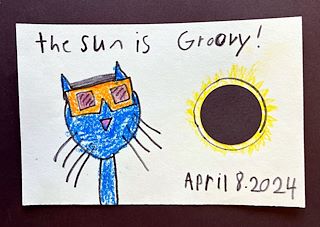 the sun is Groovy!
April 8.2024